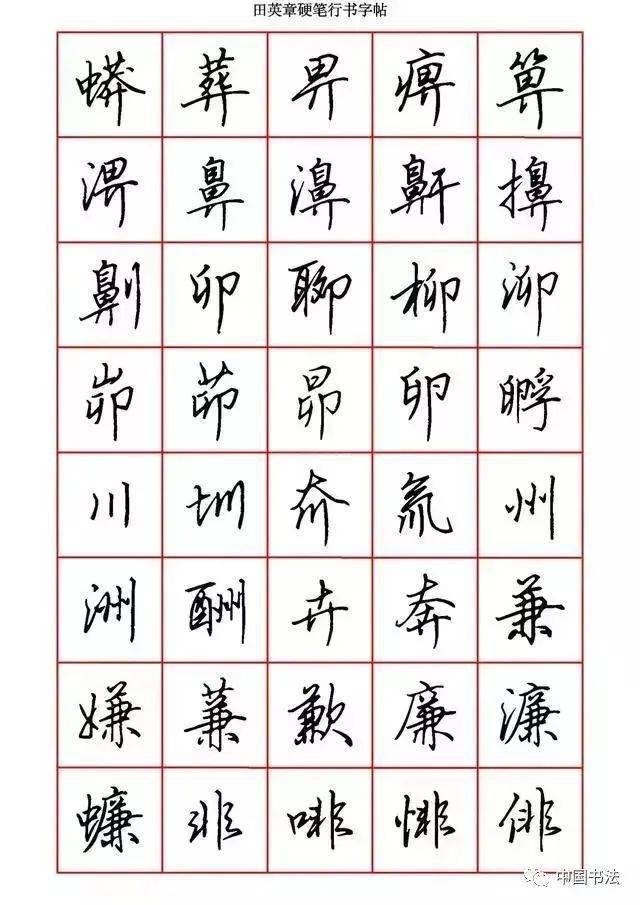 田英章硬笔行书字帖
蟒 葬 畀 痹 箅
淠 鼻 濞 鼾 擤
劓 卯 聊 柳 泖
峁 茆 昴 卵 孵
川 圳 夼 氚 州
洲 酬 卉 奔 兼
嫌 蒹 歉 廉 濂
蠊 非 啡 悱 俳
中国书法